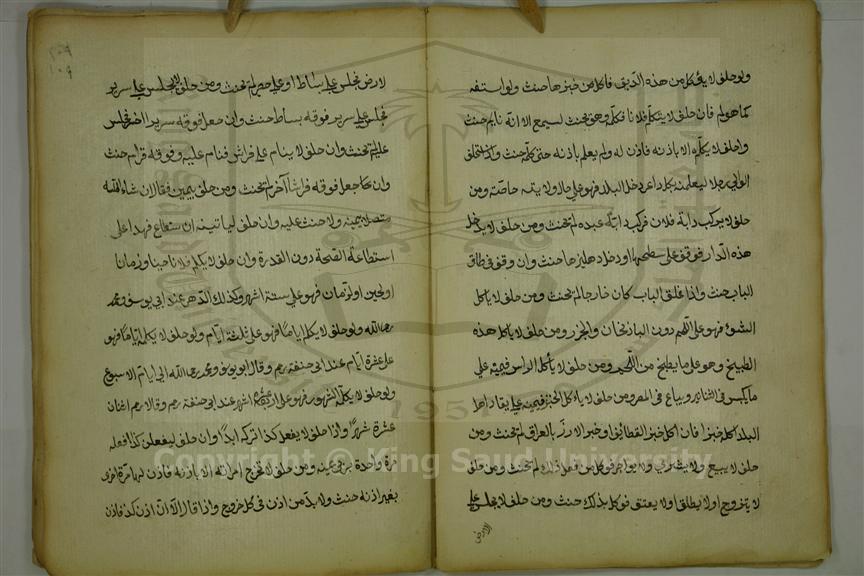 ولو حلف لا يأكل من هذه الدقيق فاكل من خبزها حنث ولو استفه
كما هو لم فان حلف لا يتكلم فلانا فكلمه وهو بحيث لسمع الا انه نايم حنث
واحلف لا يكلمه الا باذنه فاذن له ولم يعلم باذنه حتى كلمه حنث واذا استحلف
الوالي رجلا ليعلمنه بكل داعر دخل البلد فهو على حال ولايته خاصة ومن
حلف لا يركب دابة فلان فركب دابة عبده لم تحنث ومن حلف لا يدخل
هذه الدار فوقف على سطحها او دخل دهليزها حنث وان وقف في طاق
الباب حنث واذا غلق الباب كان خارجا لم تحنث ومن حلف لا ياكل
الشوئ فهو على اللحم دون الباذنجان والجزر ومن حلف لا ياكل هذه
الطبيخ وهو على ما يطبخ من اللحم ومن حلف لا ياكل الراس فيمينه علي
ما يكبس في التنانير ويباع في المصر ومن حلف لا ياكل الخبز فيمينه علي يقاد اهل
البلد اكله خبزا فان اكل خبز القطائف وخبز الارز بالعراق لم تحنث ومن
حلف لا يبيع ولا يشتري ولا يواجر فوكل من فعل ذلك لم تحنث ومن حلف
لا يتزوج او لا يطلق او لا يعتق فوكل بذلك حنث ومن حلف لا يجلس على
الارض
لارض فجلس على بساط او على حصير لم تحنث ومن حلف لا يجلس على سرير
فجلس على سرير فوقه بساط حنث وان جعل فوقه سريرا اخر فجلس
عليه لم تحنث وان حلف لا ينام على فراش فنام عليه وفوقه قرام حنث
وان جعل فوقه فراشا آخر لم تحنث ومن حلف بيمين فقال ان شاء الله
متصلا بيمينه ولا حنث عليه وان حلف لياتينه ان ستطاع فهذا على
استطاعة الصحة دون القدرة وان حلف لا يكلم فلانا حينا وزمان
او لحين او لزمان فهو على ستة اشهر وكذلك الدهر عند ابي يوسف ومحمد
رحمها الله ولو حلف لا يكلم اياما فهو على ثلثة ايام ولو حلف لا يكلمه اياما فهو
على عشرة ايام عند ابي حنفة رحم وقال ابو يوسف ومحمد رحمها الله الى ايام الاسبوع
ولو حلف لا يكلمه الشهور فهو على عشرة اشهر عند ابي حنفة رحم وقالا رحم اثنان
عشرة شهرا واذا حلف لا يفعل كذا تركه ابدا وان حلف ليفعلن كذا فعله
مرة واحدة بر في يمينه ومن حلف لا تخرج امراته الا باذنه فاذن لها مرة اخرى
بغير اذنه حنث ولا بد من اذن في كل خروج واذا قال الا ان اذن لك فاذن
١٠٩
Copyright © King Saud University
1957